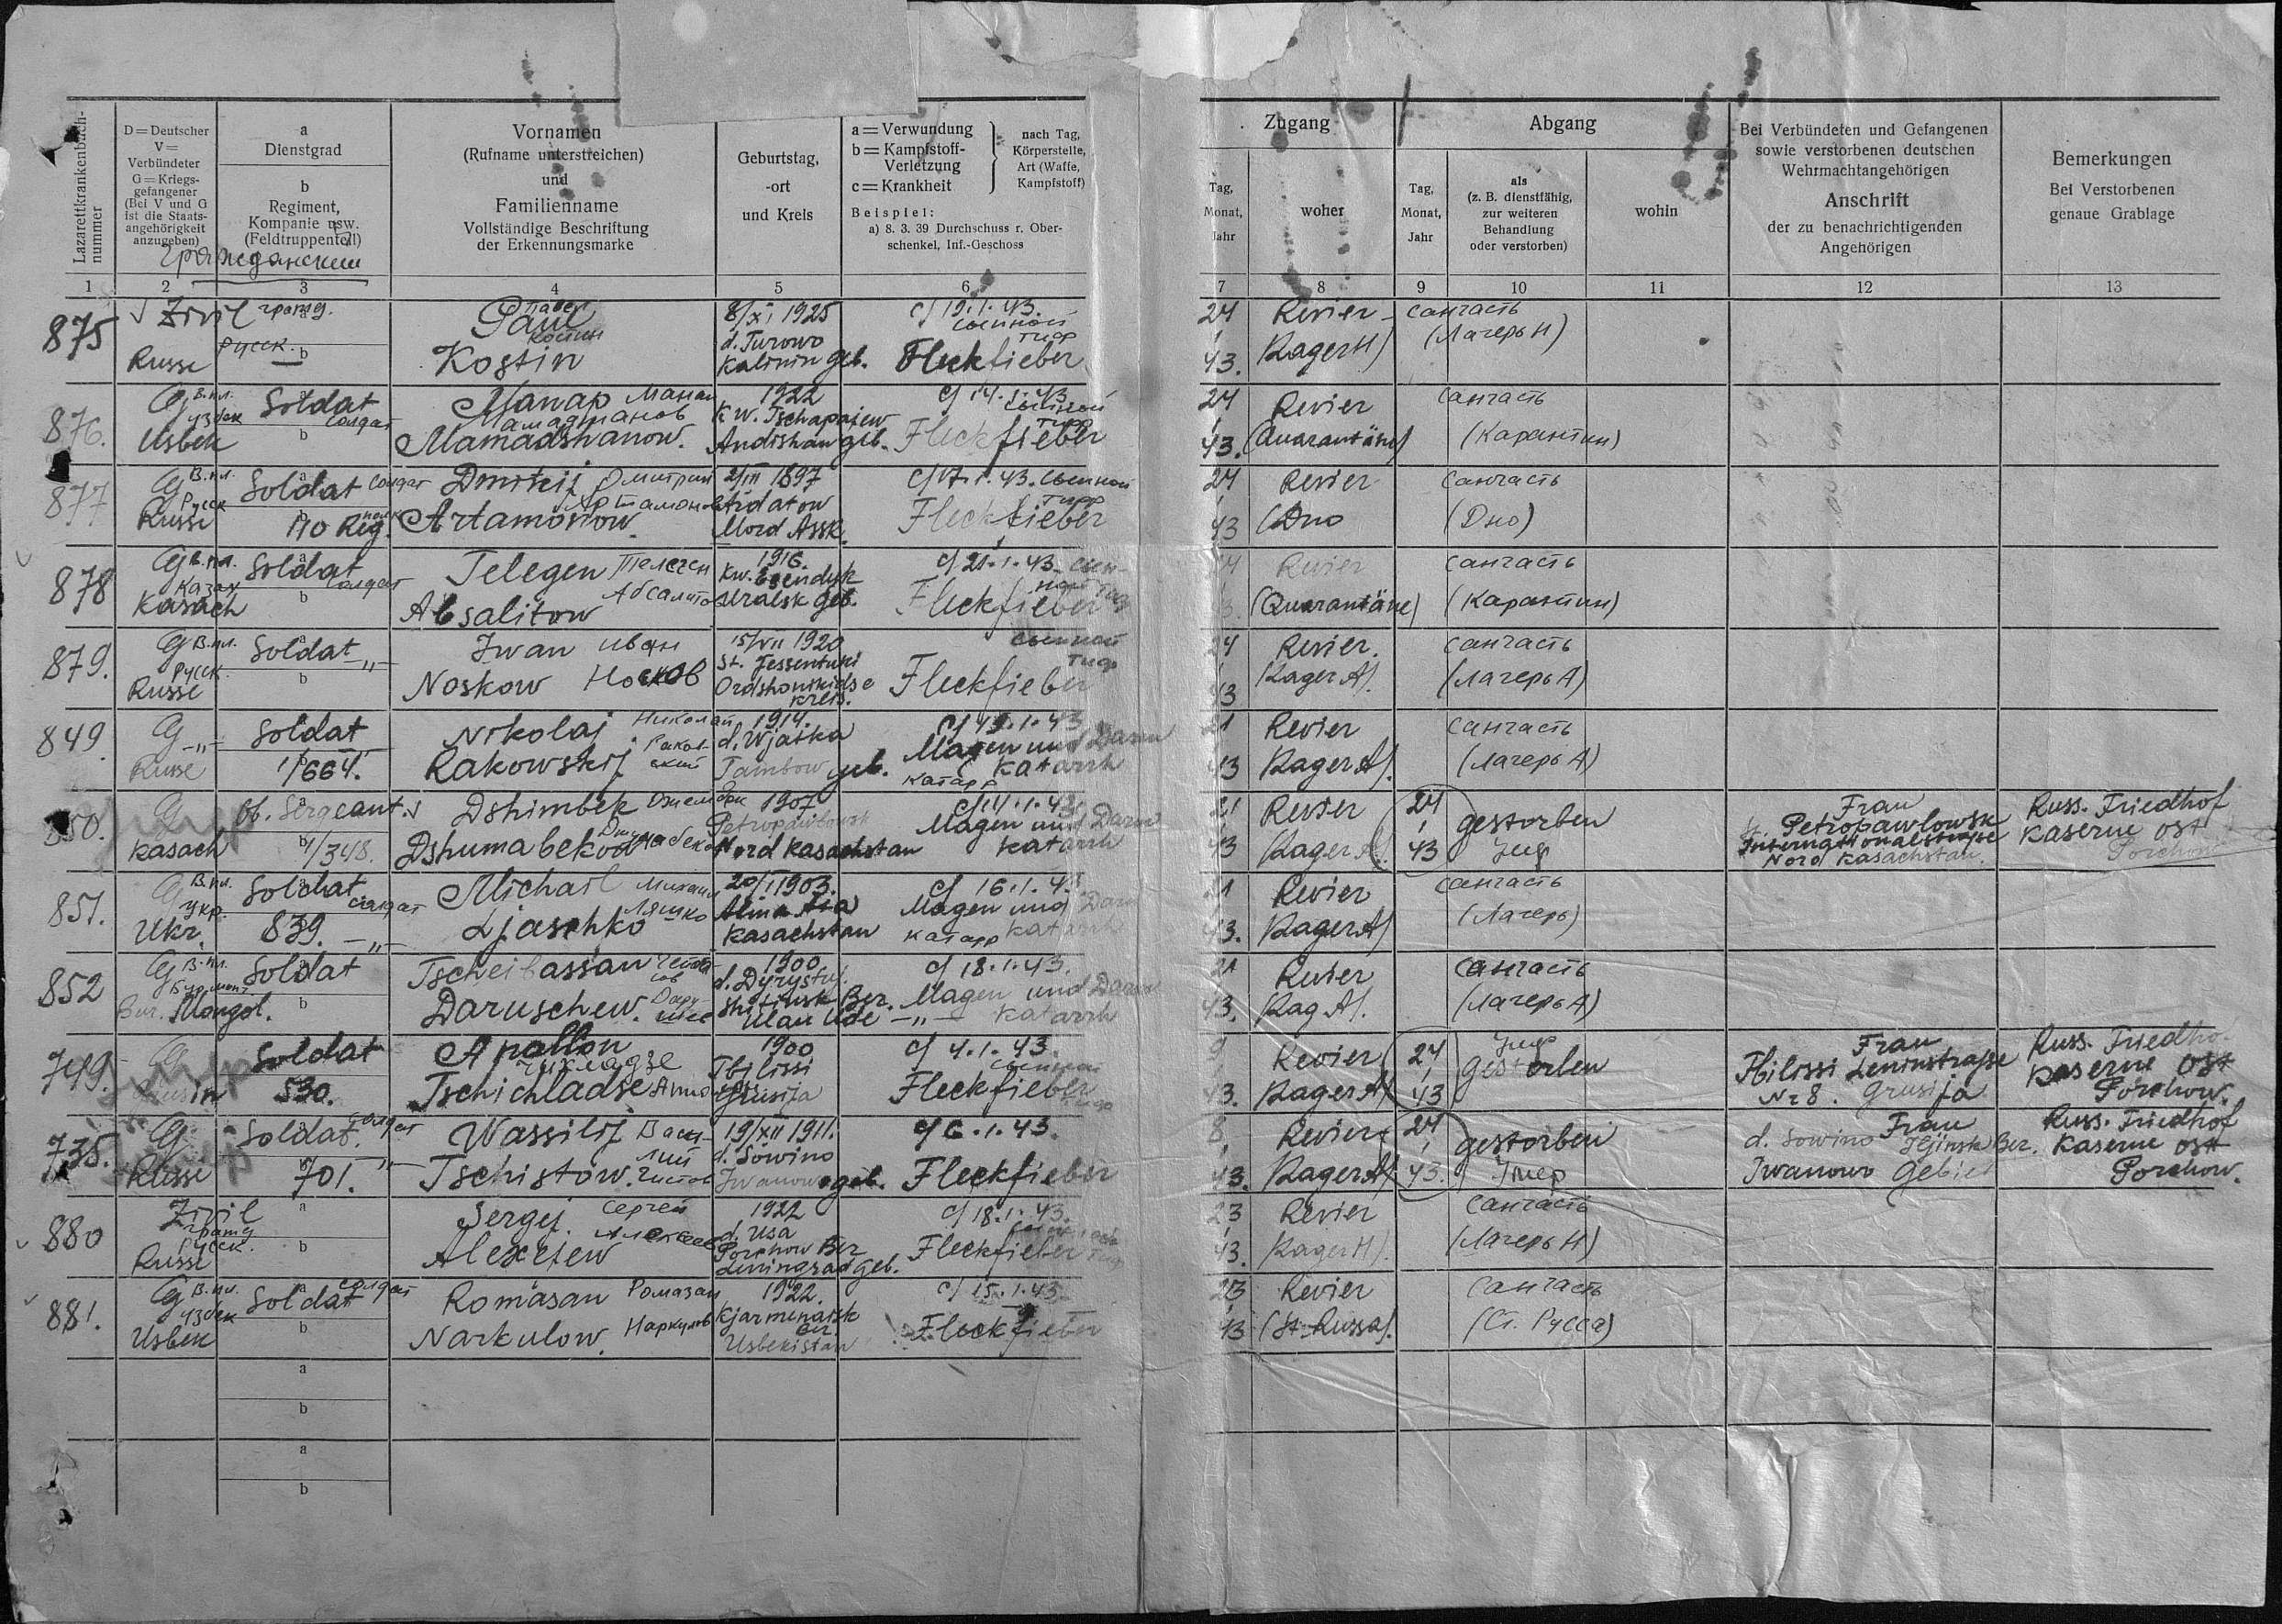 Lazarettkrankenbuch-
nummer
D = Deutscher
V =
Verbündeter
G = Kriegs-
gefangener
(Bei V und G
ist die Staats-
angehörigkeit
anzugeben)
a
Dienstgrad
b
Regiment,
Kompanie usw.
(Feldtruppenteil)
Vornamen
(Rufname unterstreichen)
und
Familienname
Vollständige Beschriftung
der Erkennungsmarke
Geburtstag,
-ort
und Kreis
a = Verwundung
b = Kampfstoff-
Verletzung
c = Krankheit
nach Tag,
Körperstelle,
Art (Waffe,
Kampfstoff)
Beispiel:
a) 8. 3. 39 Durchschuss r. Ober-
schenkel, Inf.-Geschoss
Zugang
Tag,
Monat,
Jahr
woher
Abgang
Tag,
Monat,
Jahr
als
(z. B. dienstfähig,
zur weiteren
Behandlung
oder verstorben)
wohin
Bei Verbündeten und Gefangenen
sowie verstorbenen deutschen
Wehrmachtangehörigen
Anschrift
der zu benachrichtigenden
Angehörigen
Bemerkungen
Bei Verstorbenen
genaue Grablage
1 2 3 4 5 6 7 8 9 10 11 12 13
875 Zivil Paul Павел 8/XI 1925 c/ 19.1.43. 24 Revier санчасть
Русск. Костин d. Turowo сыпной тиф
Russe Kostin Kalinin geb. Fleckfieber 43. (Lager H) (Лагерь Н)
876. G В.пл. Soldat Манап 1922 c/ 14.1.43 24 Revier санчасть
узбек солдат Мамаджанов Kw. Tschapajew сыпной тиф
Usbek Mamadshanow. Andishan geb. Fleckfieber 43. (Quarantäne) (Карантин)
877 G В.пл. Soldat солдат Dmitrij Дмитрий 2/III 1897 c/ 17.1.43. сыпной 24 Revier санчасть
Русск Артамонов Ardatow тиф
Russe 170 Reg. Artamonow Mord Assk. Fleckfieber 43 (Dno (Дно)
878 G В.пл. Soldat Telegen Телеген 1916. c/ 21.1.43. 24 Revier санчасть
Казах солдат Абсалитов
Kasach Absalitow Uralsk geb. Fleckfieber (Quarantäne) (Карантин)
879. G В.пл. Soldat Iwan Иван 15/VII 1920 сыпной 24 Revier. санчасть
Русск. St. Jessentuki тиф
Russe Noskow Носков Ordshonikidse Kreis. Fleckfieber 43 (Lager A). (Лагерь А)
849 G Soldat Nikolaj Николай 1914. c/ 19.1.43 21 Revier санчасть
d. Wjatka Magen und Darm
Russe 1/664. Rakowskij Tambow geb. катарр Katarrh 43 (Lager A). (Лагерь А)
850. G Ob. Sergeant. Dshimbek 1907 21 Revier 24 gestorben Frau Russ. Friedhof
Petropawlowsk Magen und Darm Petropawlowsk
Kasach 4/348. Dshumabekow Nord Kasachstan Katarrh 43 (Lager A). 43 Nord Kasachstan. Kaserne Ost Porchow
851. G В.пл. Soldat Michail Михаил 20/I 1903. c/ 16.1.43 21 Revier санчасть
укр. солдат Ляшко Alma Ata Magen und Darm
Ukr. 839. Ljaschko Kasachstan катарр Katarrh 43. (Lager A) (Лагерь)
852 G В.пл. Soldat Tscheibassan 1900 c/ 18.1.43. 21 Revier санчасть
Magen und Darm
Bur. Mongol. Daruschew. Ulan Ude Katarrh 43. (Lag A). (Лагерь А)
749. G Soldat Apollon 1900 c/ 4.1.43. 9 Revier 24 gestorben Frau Russ. Friedhof
Чихладзе Tbilissi сыпной Tbilissi Leninstraße Kaserne Ost
530. Tschichladse Grusija Fleckfieber 43. (Lager A) 43 Nr 8. Grusija Porchow.
735. G Soldat солдат Wassilij Василий 19/XII 1911. c/ 6.1.43. 8 Revier 24 gestorben Frau Russ. Friedhof
d. Sowino d. Sowino Iljinsk Ber. Kaserne Ost
Russe 701. Tschistow. Чистов Iwanowo geb. Fleckfieber 43. (Lager A) 43. Умер Iwanowo Gebiet Porchow.
880 Zivil Sergej Сергей 1922 c/ 18.1.43. 23 Revier санчасть
Русск. Алексеев d. Usa
Porchow Ber
Russe Alexejew Leningrad geb. Fleckfieber 43. (Lager H). (Лагерь Н)
881. G В.пл. Soldat солдат Romasan Ромазан 1922. c/ 15.1.43. 23 Revier санчасть
узбек
Usbek Narkulow. Наркулов Usbekistan Fleckfieber 43 (St. Russa). (Ст. Русса)
a
b
a
b